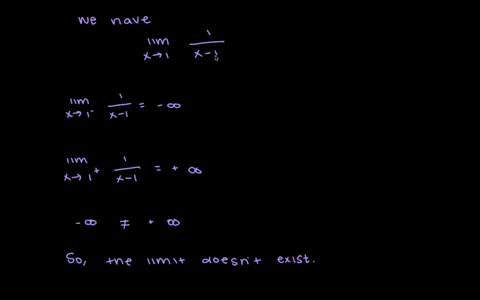 we have
lim x→1 1/(x-1)
lim x→1⁻ 1/(x-1) = -∞
lim x→1⁺ 1/(x-1) = +∞
-∞ ≠ +∞
So, the limit doesn't exist.